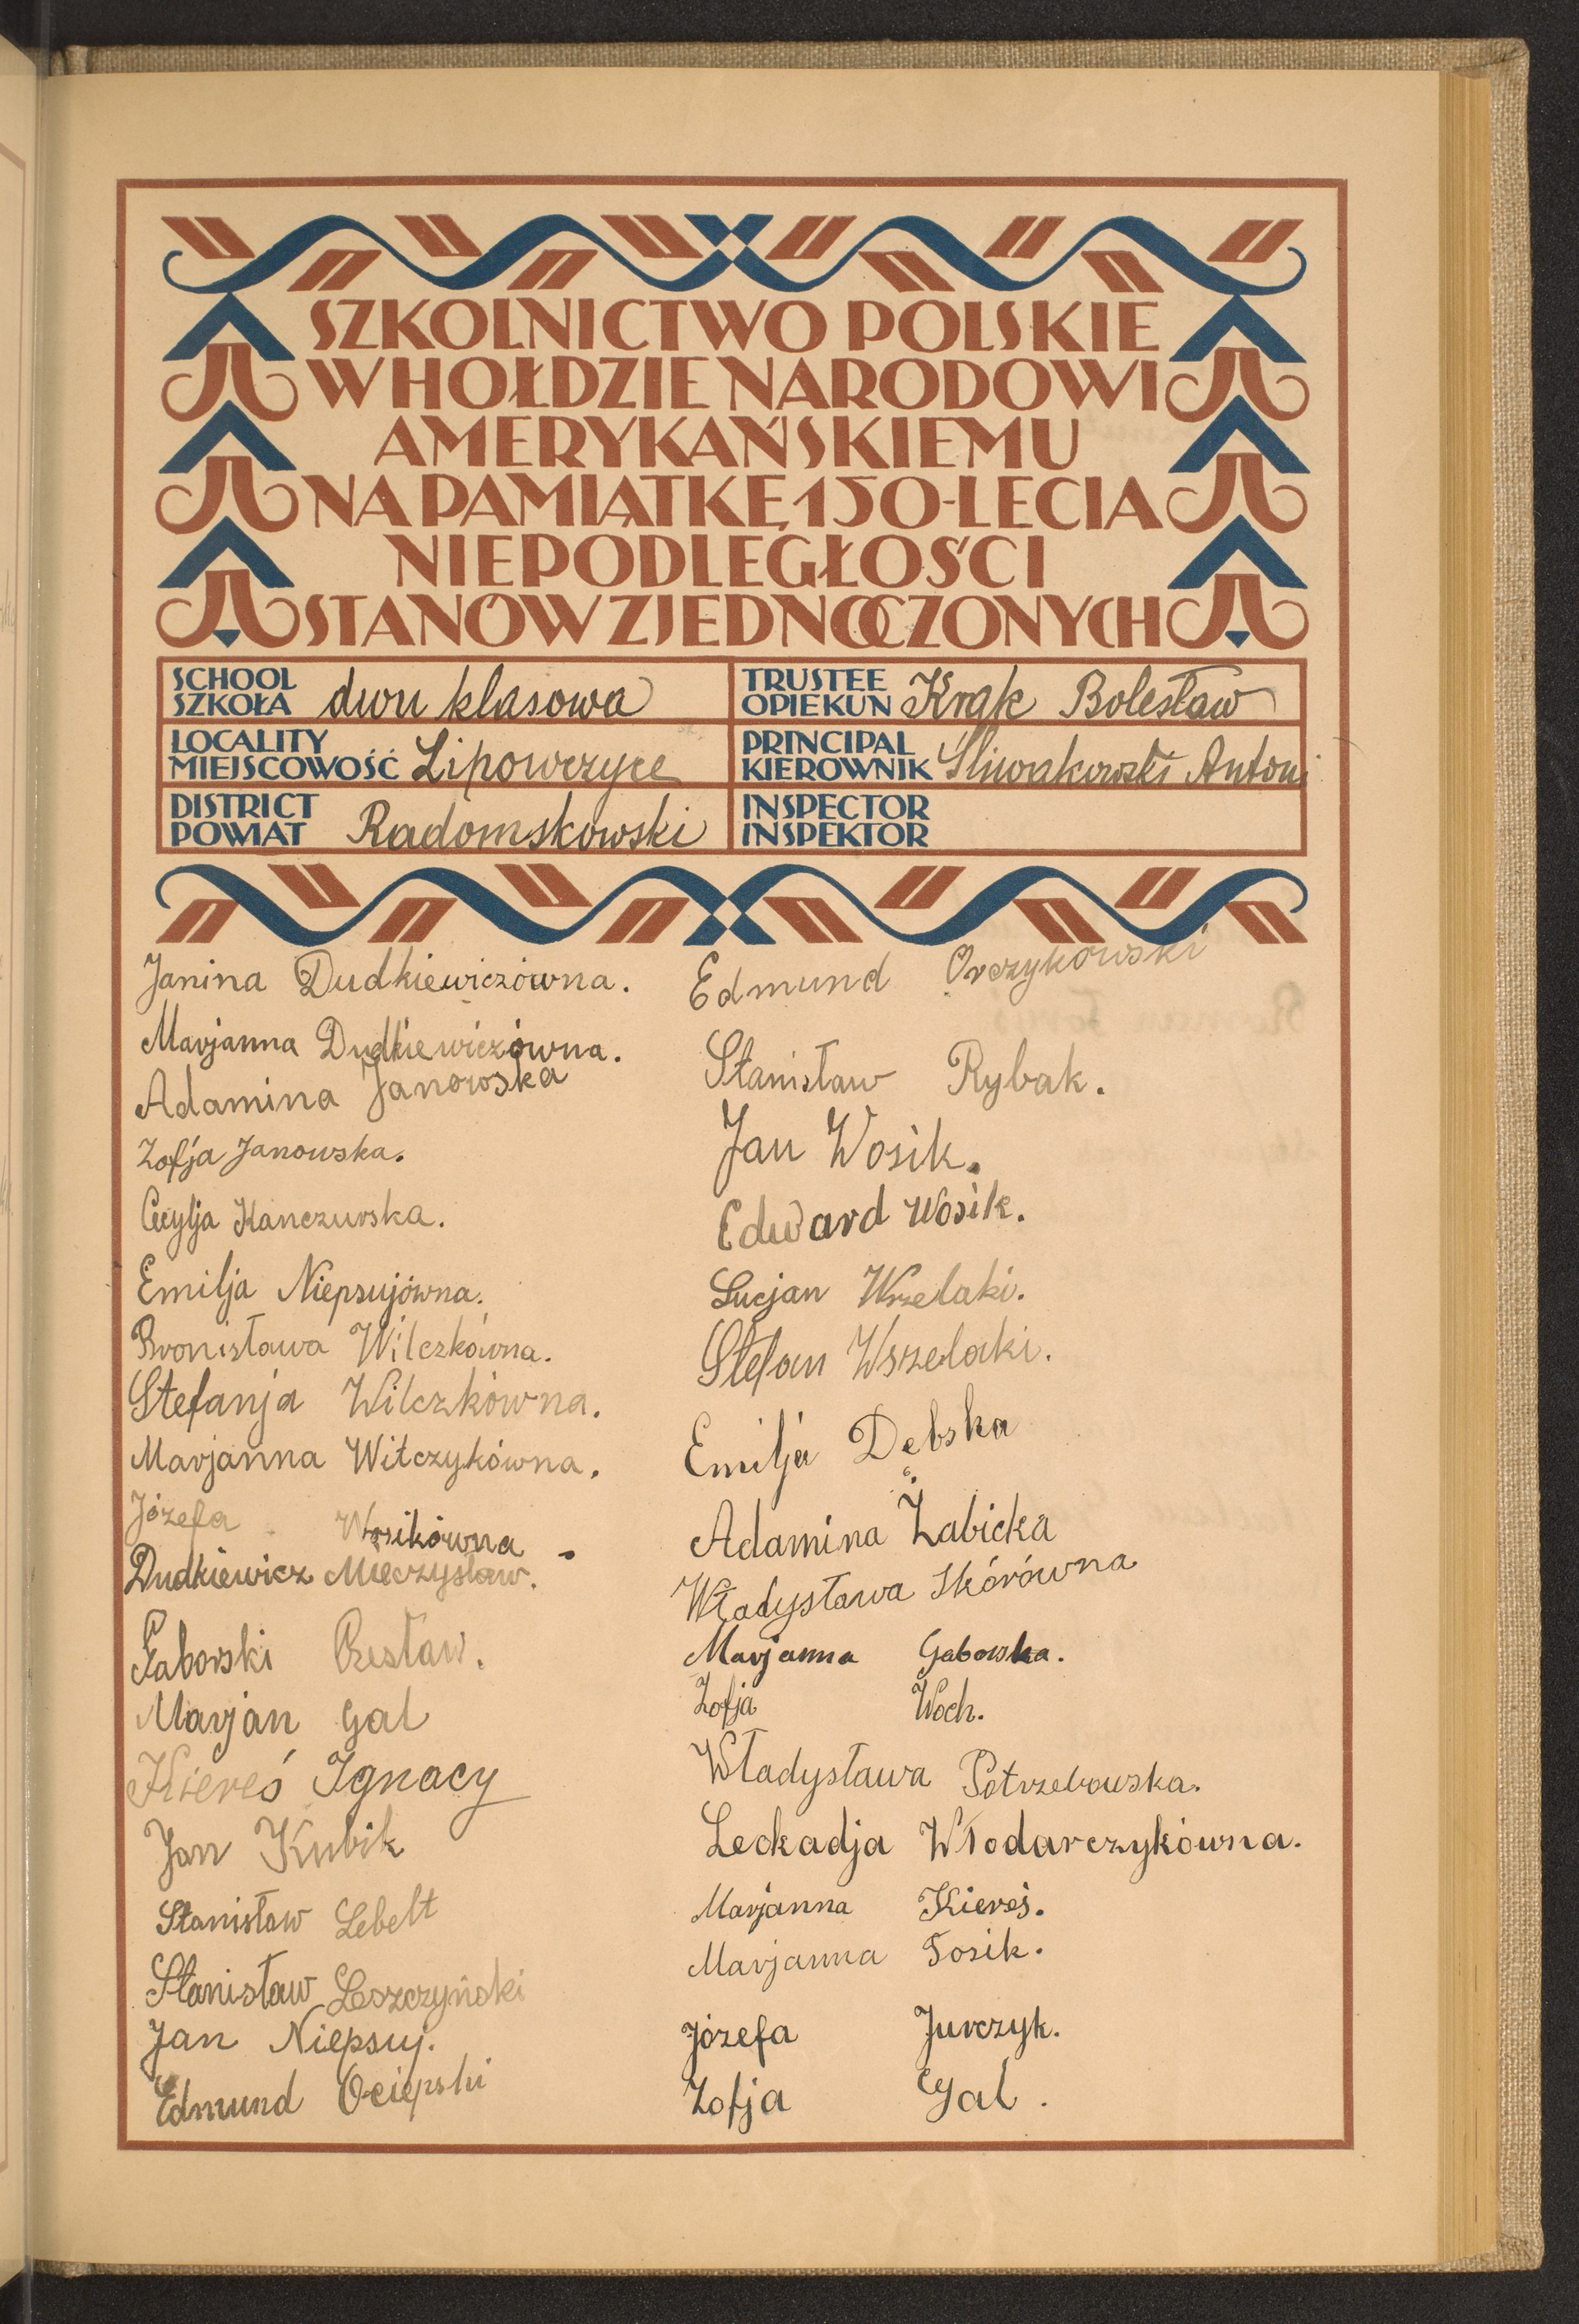 SZKOLNICTWO POLSKIE
W HOŁDZIE NARODOWI
AMERYKAŃSKIEMU
NA PAMIĄTKĘ 150-LECIA
NIEPODLEGŁOŚCI
STANÓW ZJEDNOCZONYCH
SCHOOL
SZKOŁA dwu klasowa
TRUSTEE
OPIEKUN Krąk Bolesław
LOCALITY
MIEJSCOWOŚĆ Lipowczyce
PRINCIPAL
KIEROWNIK Śliwakowski Antoni
DISTRICT
POWIAT Radomskowski
INSPECTOR
INSPEKTOR
Janina Dudkiewiczówna.
Marjanna Dudkiewiczówna.
Adamina Janowska
Zofja Janowska.
Cecylja Kanczurska.
Emilja Niepsujówna.
Bronisława Wilczkówna.
Stefanja Wilczkówna.
Marjanna Witczykówna.
Józefa Wosikówna.
Dudkiewicz Mieczysław.
Gaborski Czesław.
Marjan Gal
Kiereś Ignacy
Jan Kubik
Stanisław Lebelt
Stanisław Leszczyński
Jan Niepsuj.
Edmund Ociepski
Edmund Orczykowski
Stanisław Rybak.
Jan Wosik.
Edward Wosik.
Lucjan Wrzelaki.
Stefan Wszelaki.
Emilja Dębska
Adamina Żabicka
Władysława Skórówna
Marjanna Gaborska.
Zofja Woch.
Władysława Potrzebowska.
Leokadja Włodarczykówna.
Marjanna Kiereś.
Marjanna Tosik.
Józefa Jurczyk.
Zofja Gal.